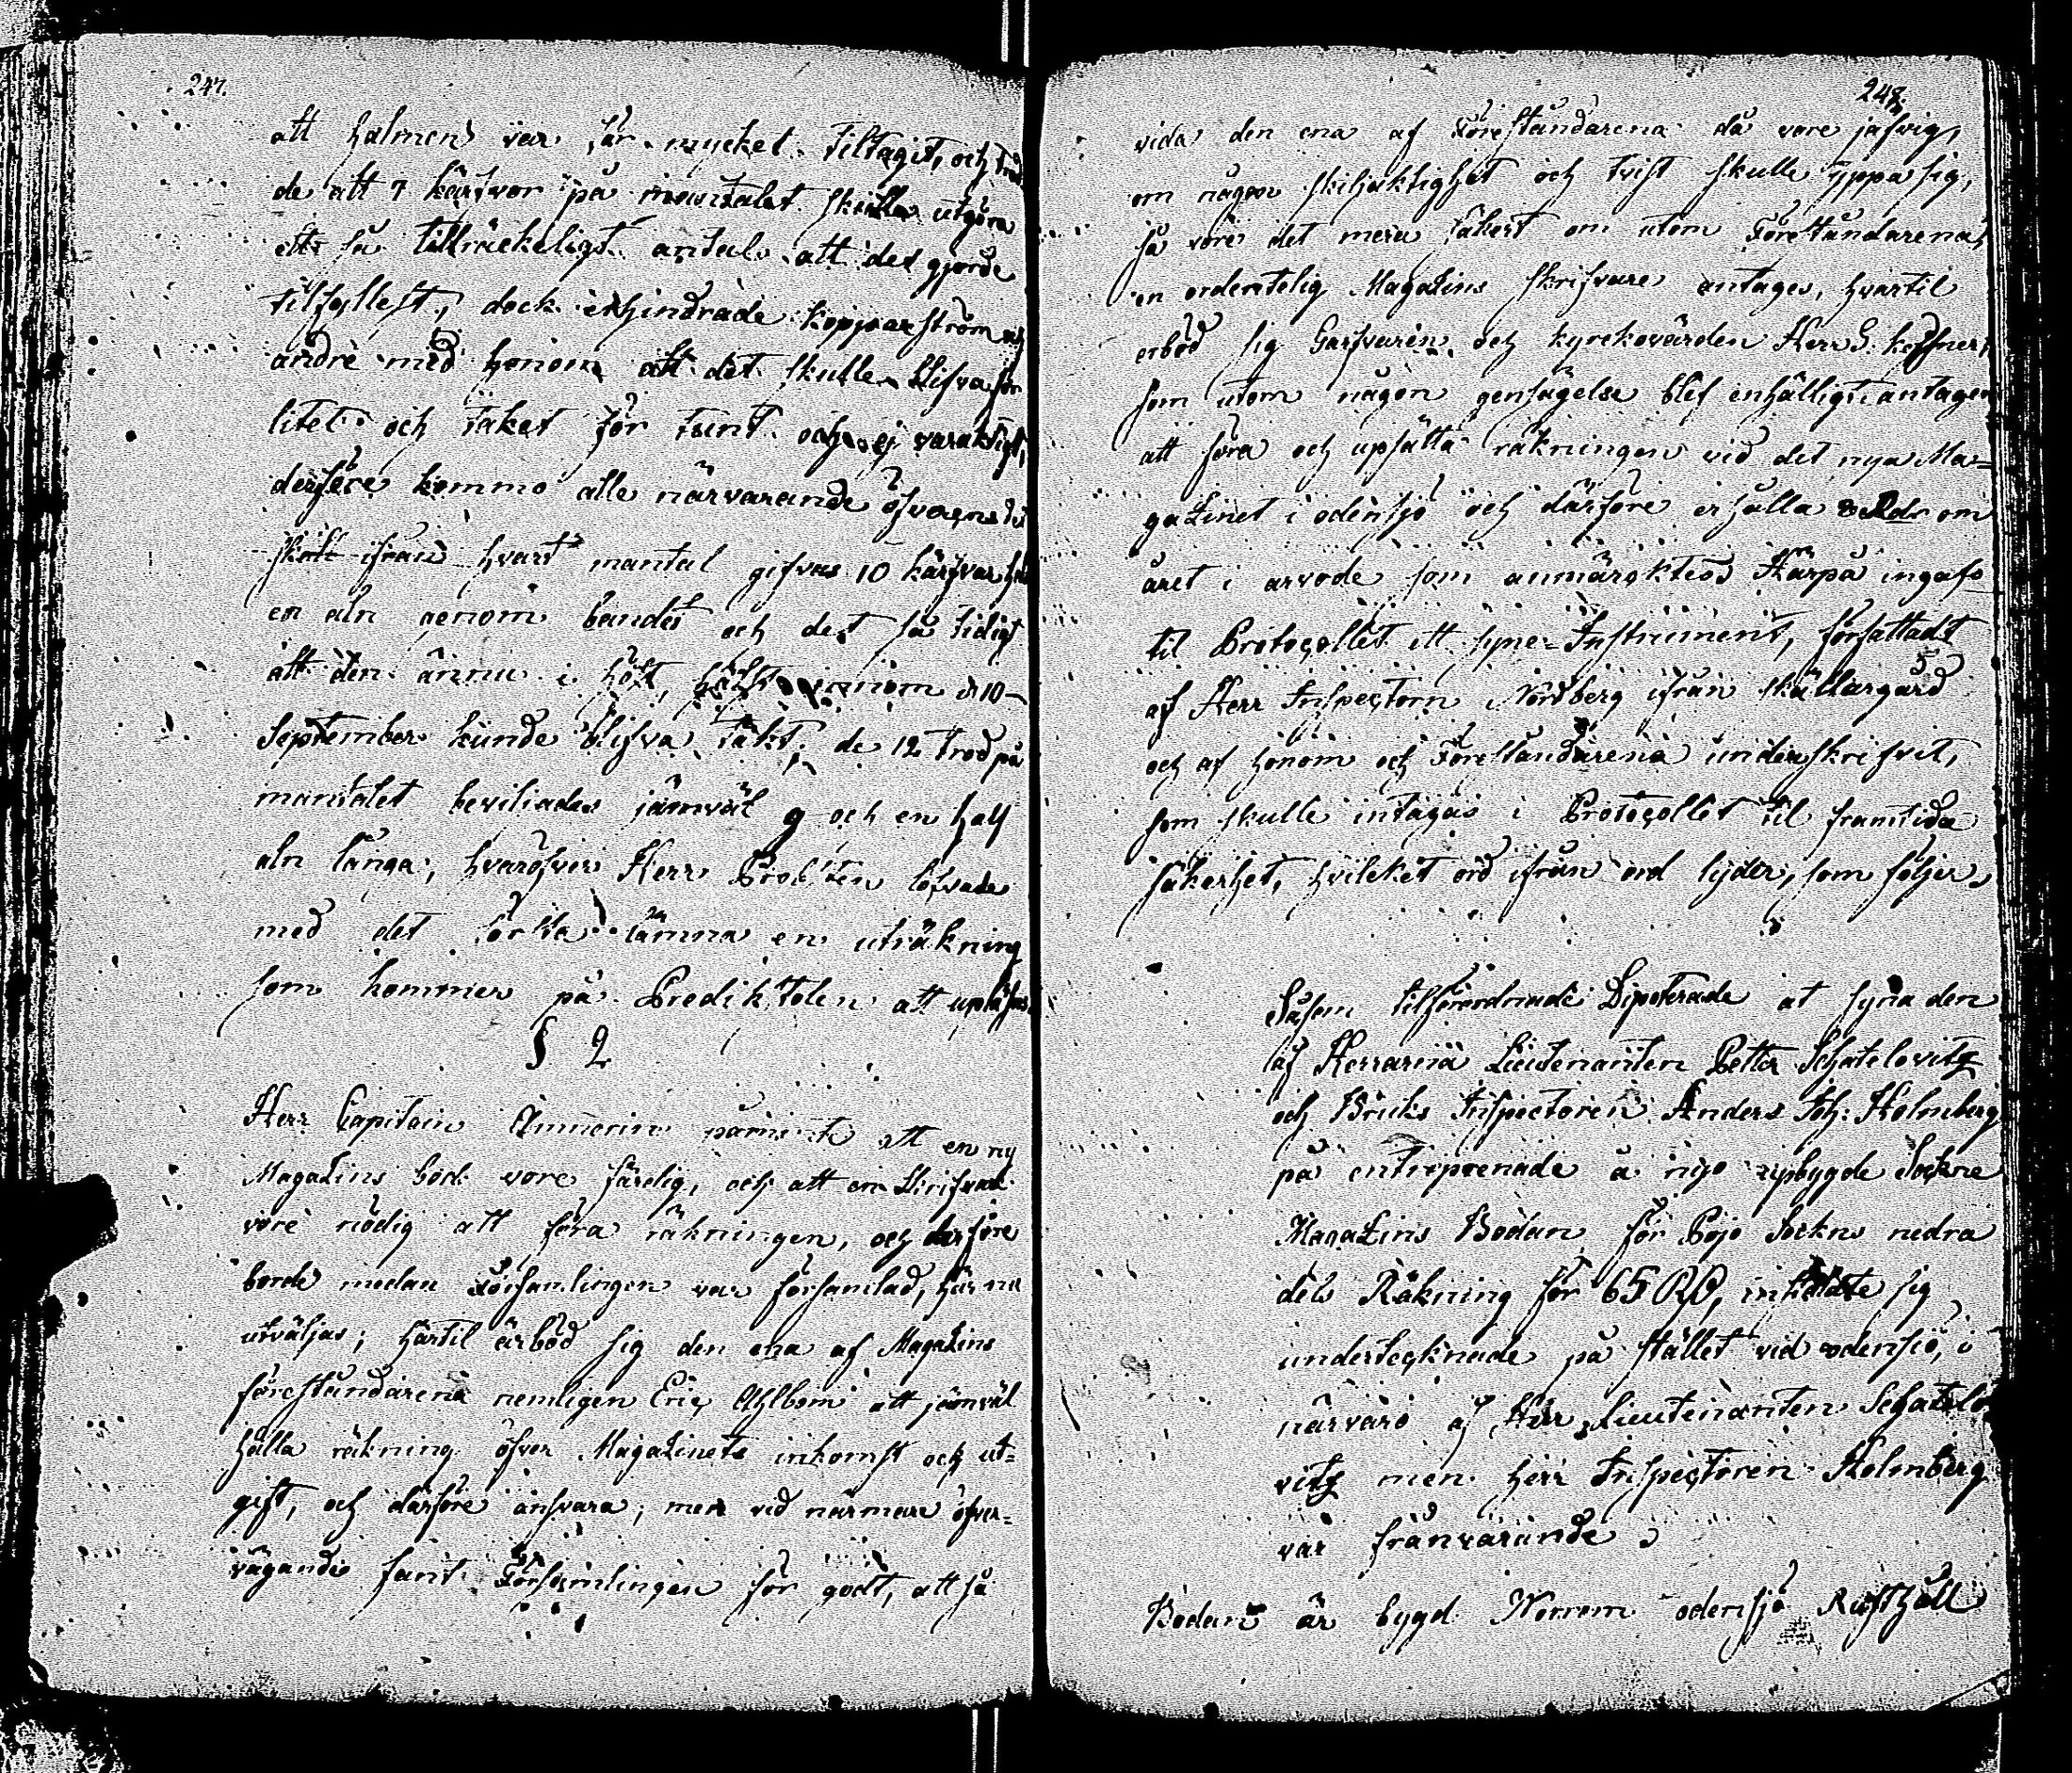 247.
att halmen var för mycket tiltagit, och trod
de att 7 kärfvar på mantalet skulle utgöra
ett så tillräckeligt antal att det gjorde
tilfyllest, dock erhindrade Kopparström och
andre med honom att det skulle blifva för
litet och taket för tunt och ej varaktigt,
derföre kommo alle närvarande öfverens
ifrån hvart mantal gifves 10 kärfvar
en aln genom bandet och det så tidigt
att den ännu i höst, innom d 10
September kunde blifva täkt; de 12 trod på
mantalet beviliades jämväl 9 och en half
aln långa; hvaröfver Herr Prosten löfvade
med det första lämna en uträkning
som kommer på Predikstolen att upläsas.
§ 2
Herr Capitain påminte att en ny
Magazins bod vore färdig, och att en Skrifvare
vore nödig att föra räkningen, och derföre
borde medan Församlingen var församlad, här nu
utväljas; härtil ärböd sig den ena af Magazins
föreståndarena nemligen Eric Ahlbom att jämväl
hålla räkning öfver Magazinets inkomst och ut=
gift, och därföre ansvara; men vid närmare öfver=
vägande fant Församlingen för godt, att så
248.
vida den ena af Föreståndarena då vore jäfvig,
om någon skiljaktighet och tvist skulle yppa sig,
så vore det mera säkert om utom Föreståndarena,
en ordentelig Magazins skrifvare antages, hvartil
erböd sig Garfvaren och kyrckovärden Herr G.
som utom någon gensägelse blef enhälligt antagen
att föra och upsätta räkningen vid det nya Ma=
gazinet i odensjö och därföre erhålla Rdr om
året i arvode som anmärcktes Härpå ingafs
til Protocollet ett syne=Instrument, författadt
af Herr Inspectorn Nordberg ifrån skällargård
och af honom och Föreståndarena underskrifvit,
som skulle intagas i Protocollet til framtida
säkerhet, hvilcket ord ifrån ord lyder, som följer.
Såsom tilförordnade Deputerade at syna den
af Herrarna Lieutenanten Petter Schatelovitz
och Bruks Inspectoren Anders Joh: Holmberg
på entreprenade å nyo upbygde Sockne
Magazins Bodan för Pojo Sockns nedra
dels Räkning för 65 RD, sig
undertecknade på stället vid odensjö, i
närvaro af Herr Lieutenanten Schatelo
vitz men herr Inspectoren Holmberg
var frånvarande.
Bodan är bygd Norrom odensjö Rusthåll